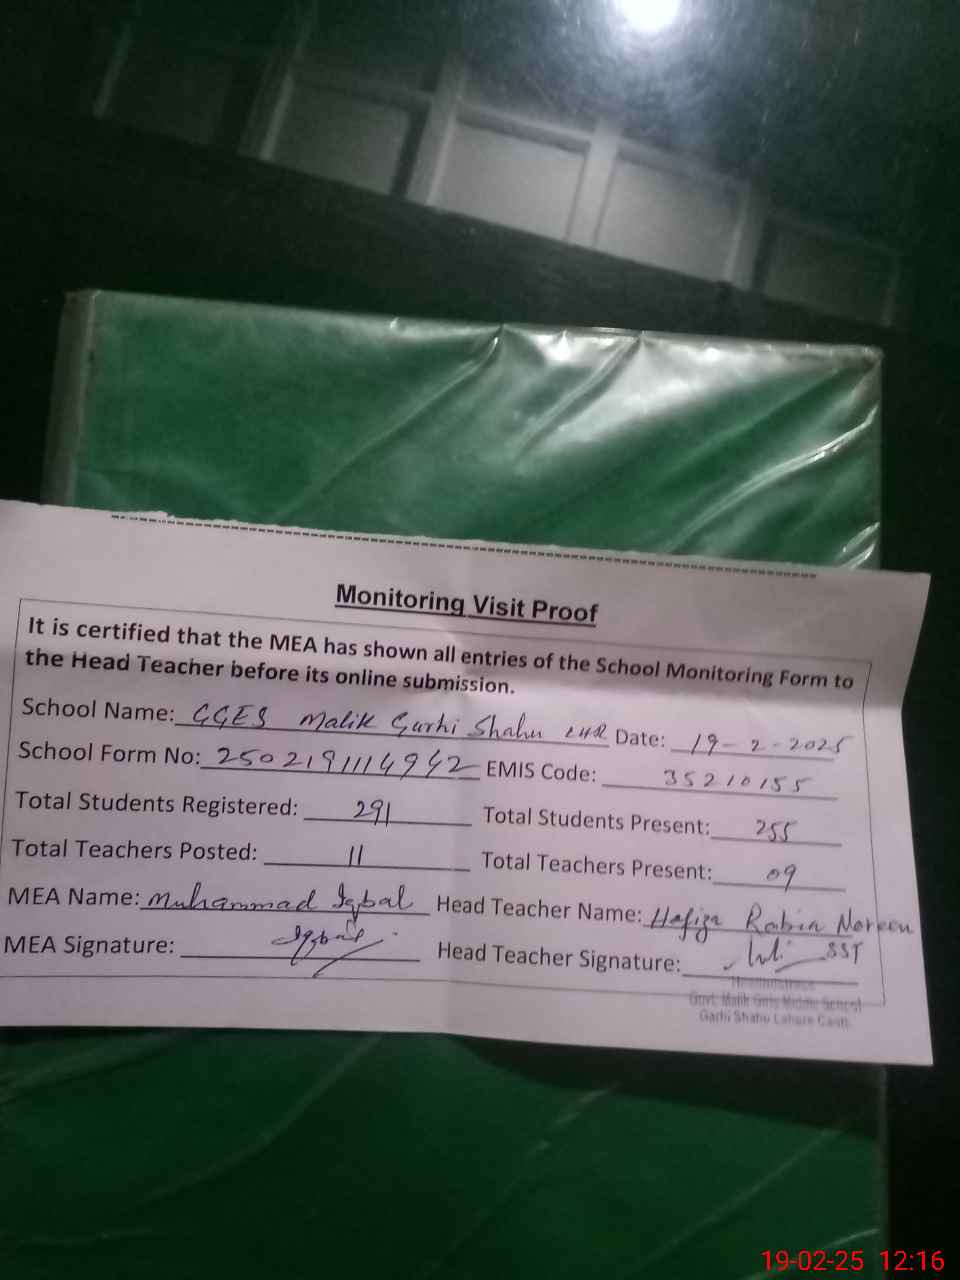 Monitoring Visit Proof
It is certified that the MEA has shown all entries of the School Monitoring Form to
the Head Teacher before its online submission.
School Name: GGES Malik Garhi Shahu LHR Date: 19-2-2025
School Form No: 2502191114942 EMIS Code: 35210155
Total Students Registered: 291 Total Students Present: 255
Total Teachers Posted: 11 Total Teachers Present: 09
MEA Name: Muhammad Iqbal Head Teacher Name: Hafiza Rabia Noreen
MEA Signature: Iqbal Head Teacher Signature: SST
Headmistress
Govt. Malik Girls Middle School
Garhi Shahu Lahore Cantt.
19-02-25 12:16